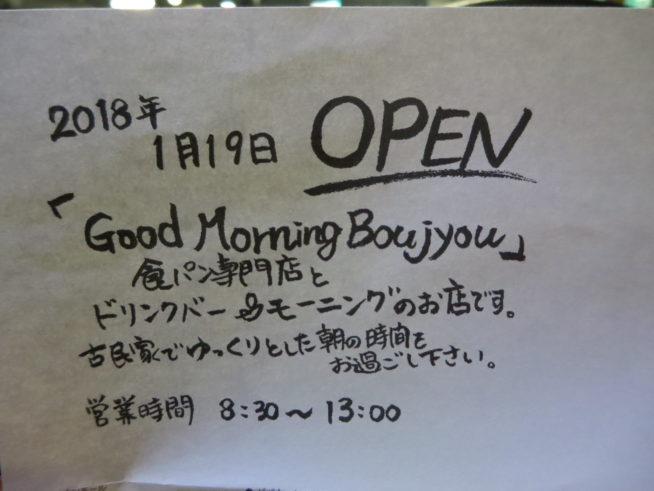 2018年
1月19日 OPEN
「Good Morning Boujyou」
食パン専門店と
ドリンクバー&モーニングのお店です。
古民家でゆっくりとした朝の時間を
お過ごし下さい。
営業時間 8:30〜13:00